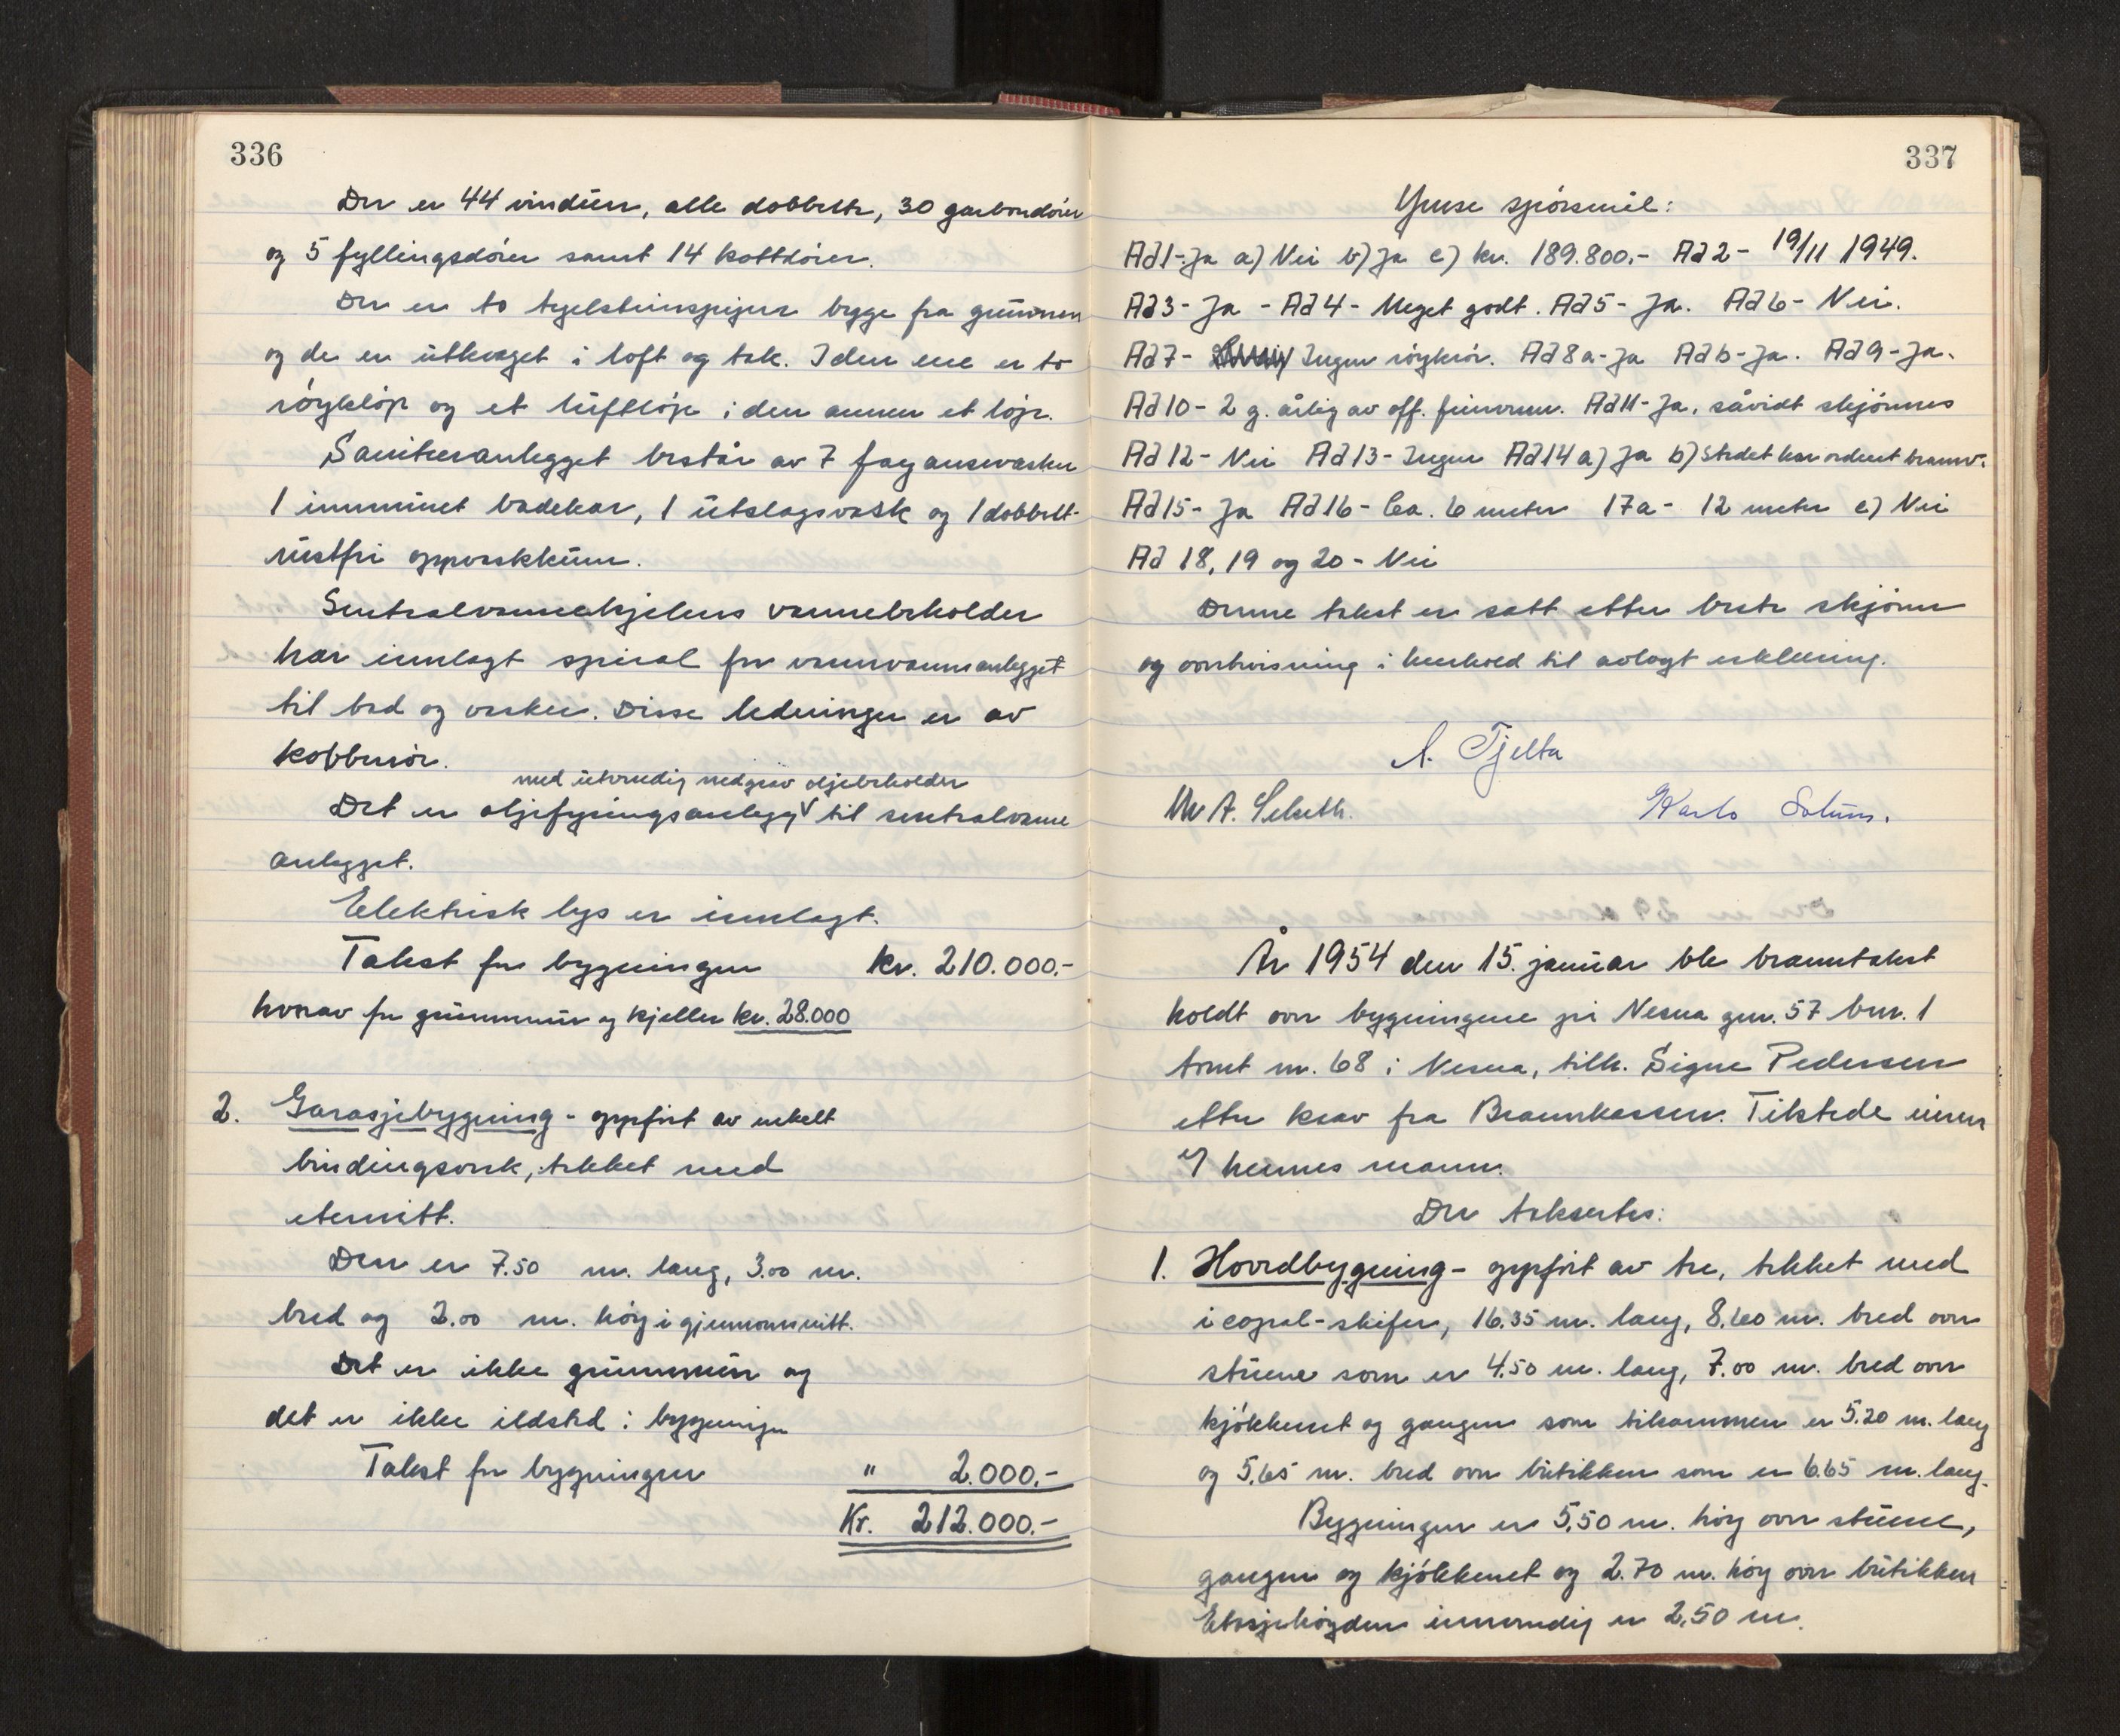 336
Der er 44 vinduer, alle dobbelte, 30 gabondører
og 5 fyllingsdører samt 14 kottdører.
Der er to tegelsteinspiper bygge fra grunnen
og de er utkraget i loft og tak. I den ene er to
røykløp og et luftløp i den annen et løp.
Sanitæranlegget består av 7 fayansevasker
1 innmuret badekar, 1 utslagsvask og 1 dobbelt-
rustfri oppvaskkum.
Sentralvarmekjelens vannbeholder
har innlagt spiral for varmvannsanlegget
til bad og vasker. Disse ledninger er av
kobberrør.
med utvendig nedgrav oljebeholder
Det er oljefyringsanlegg til sentralvarme
anlegget.
Elektrisk lys er innlagt.
Takst for bygningen kr. 210.000.-
hvorav for grunnmur og kjeller kr. 28.000
2. Garasjebygning - oppført av enkelt
bindingsverk, tekket med
eternitt.
Den er 7.50 m. lang, 3.00 m.
bred og 2.00 m. høy i gjennomsnitt.
Det er ikke grunnmur og
det er ikke ildsted i bygningen
Takst for bygningen " 2.000.-
Kr. 212.000.-
337
Ymse spørsmål:
Ad 1- Ja a) Nei b) Ja c) kr. 189.800.- Ad 2- 19/11 1949.
Ad 3- Ja - Ad 4- Meget godt. Ad 5- Ja. Ad 6- Nei.
Ad 7- Ingen røykrør. Ad 8a- Ja Ad b- Ja. Ad 9- Ja.
Ad 10- 2 g. årlig av off. feiervesen. Ad 11- Ja, såvidt skjønnes
Ad 12- Nei Ad 13- Ingen Ad 14 a) Ja b) Stedet har ordent brannv.
Ad 15- Ja Ad 16- Ca. 6 meter 17a- 12 meter c) Nei
Ad 18, 19 og 20- Nei
Denne takst er satt etter beste skjønn
og overbevisning i henhold til avlagt erklæring.
A. Tjelta
M. A. Selseth. Karlo Solum.
År 1954 den 15. januar ble branntakst
holdt over bygningene på Nesna gnr. 57 bnr. 1
tomt nr. 68 i Nesna, tilh. Signe Pedersen
etter krav fra Brannkassen. Tilstede eieren
og hennes mann.
Der taksertes:
1. Hovedbygning - oppført av tre, tekket med
icopal-skifer, 16.35 m. lang, 8.60 m. bred over
stuene som er 4.50 m. lang, 7.00 m. bred over
kjøkkenet og gangen som tilsammen er 5.20 m. lang
og 5.65 m. bred over butikken som er 6.65 m. lang.
Bygningen er 5.50 m. høy over stuene,
gangen og kjøkkenet og 2.70 m. høy over butikken
Etasjehøyden innvendig er 2,50 m.